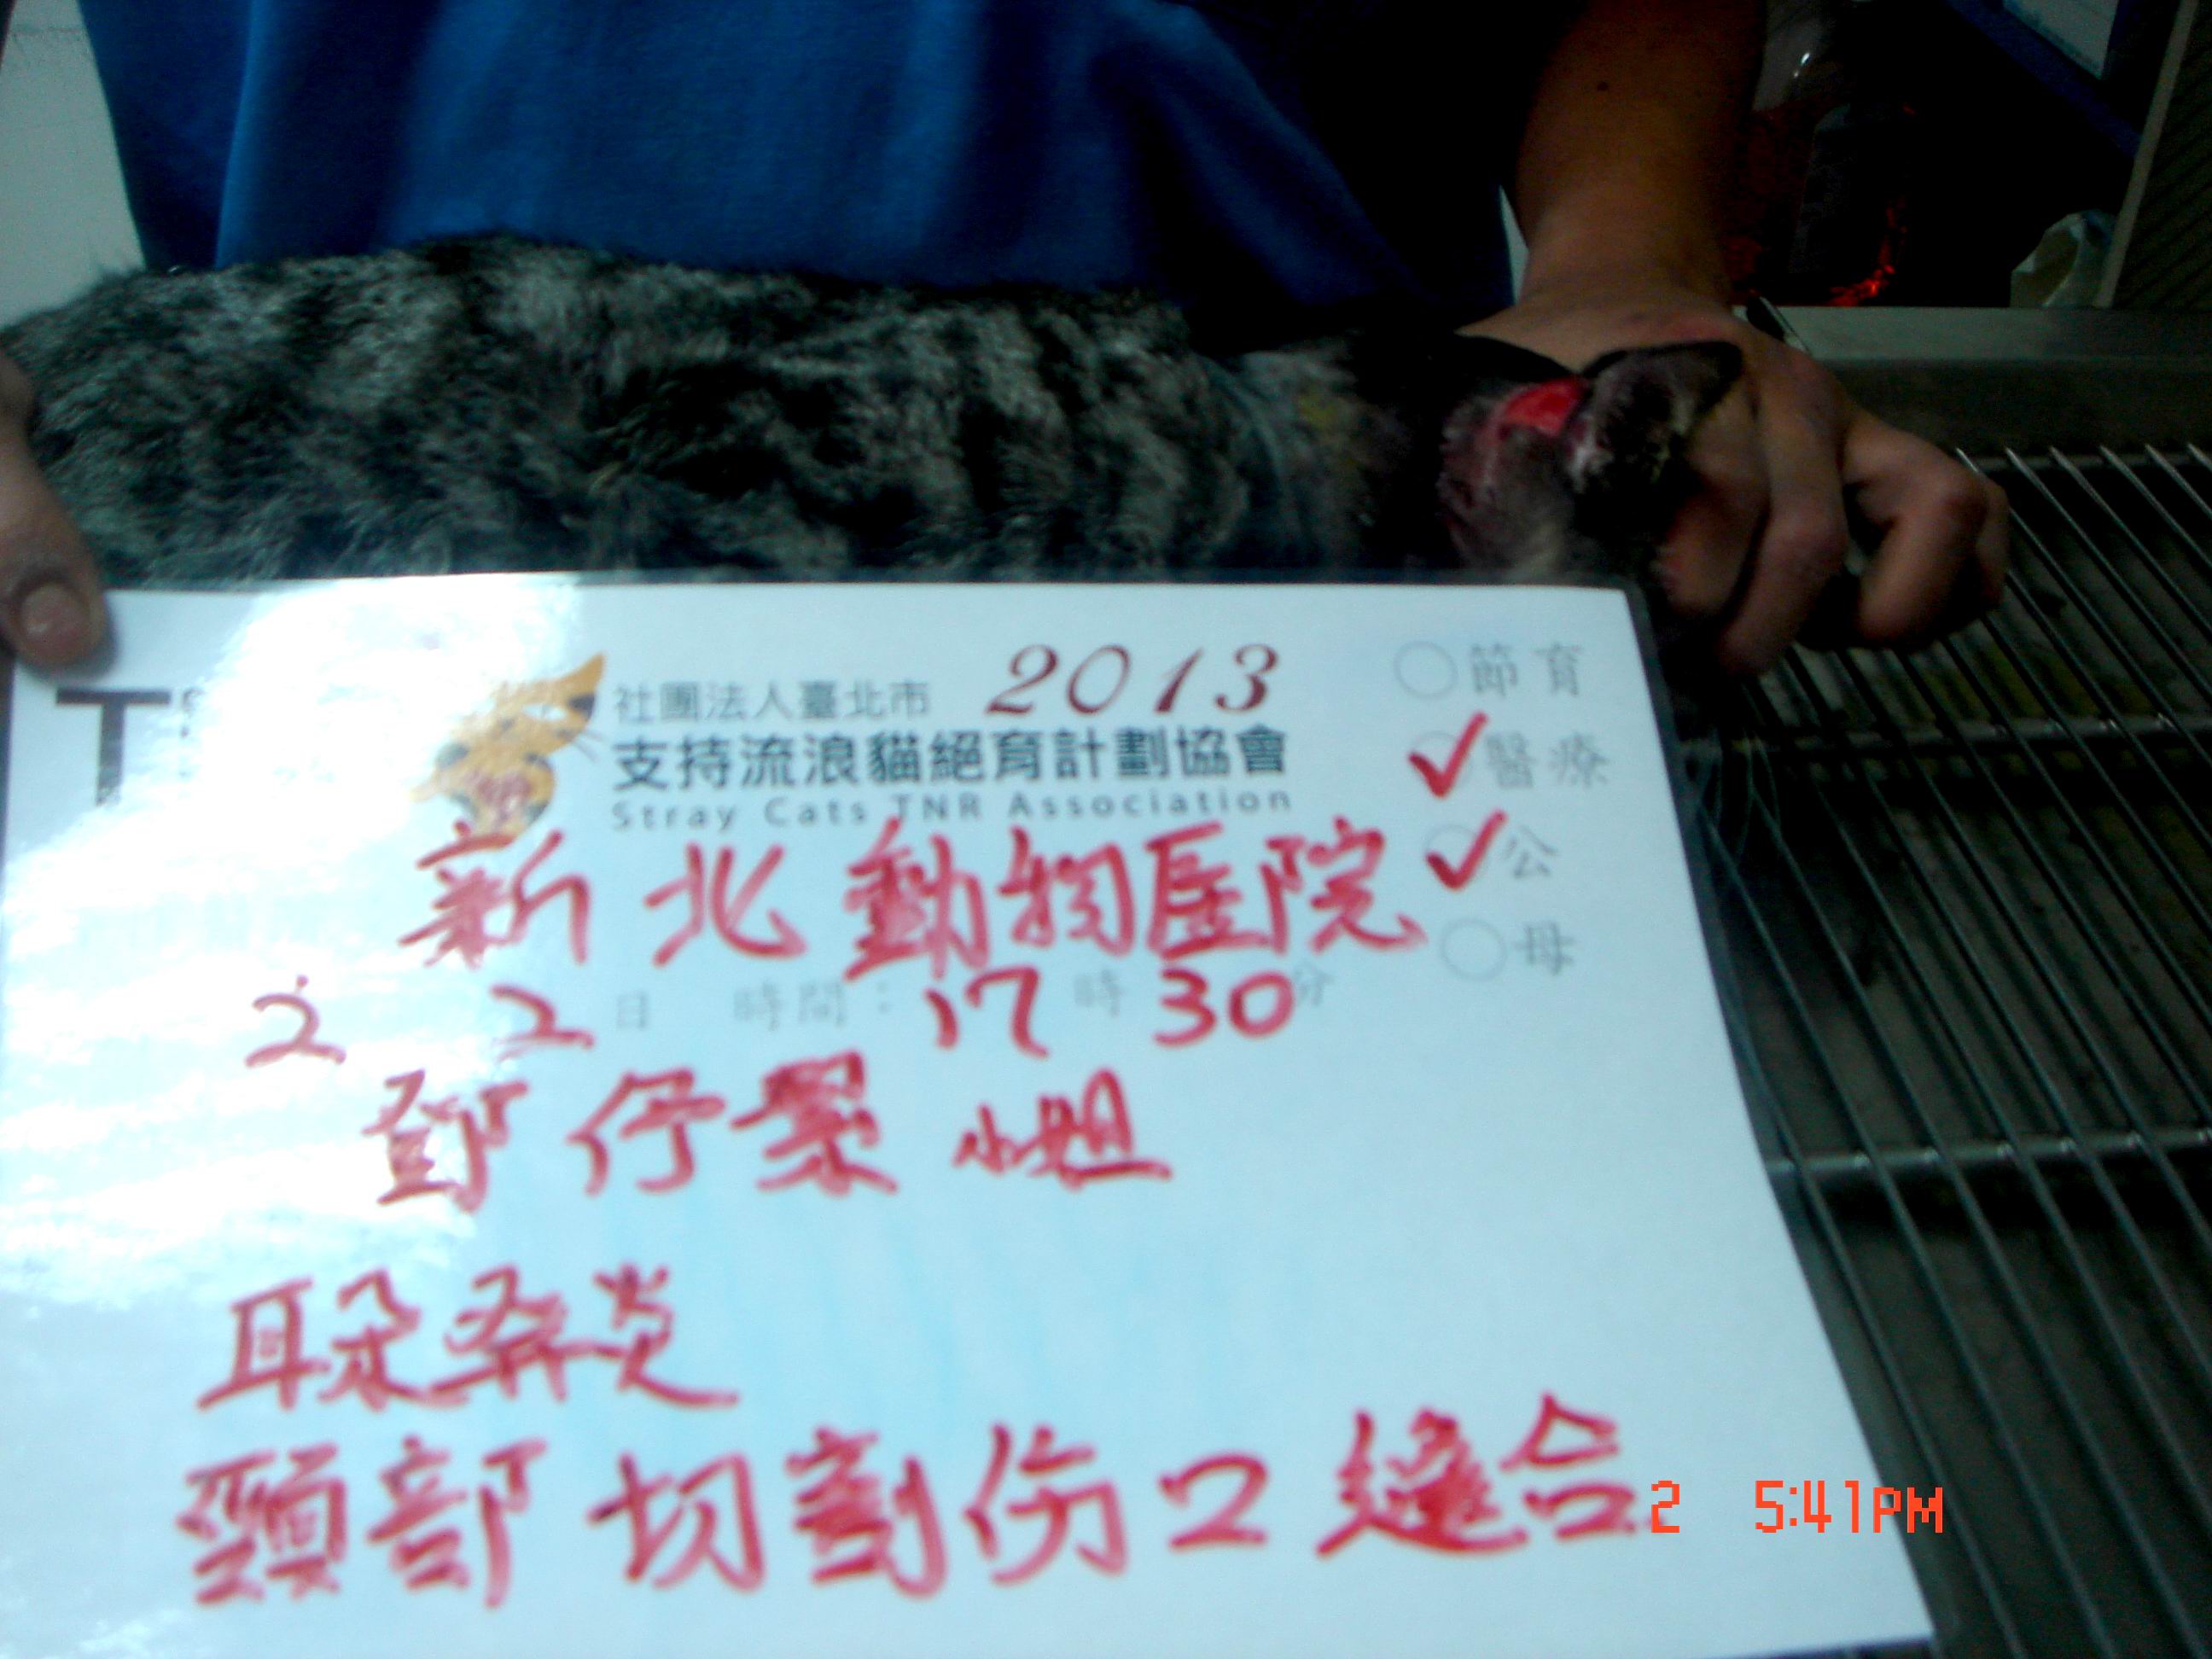 社團法人臺北市 2013
支持流浪貓絕育計劃協會
Stray Cats TNR Association
節育
醫療
公
母
新北動物医院
2 2日 時間：17時30分
鄧伃 小姐
耳朵 炎
頸部切割伤口縫合
2 5:41PM